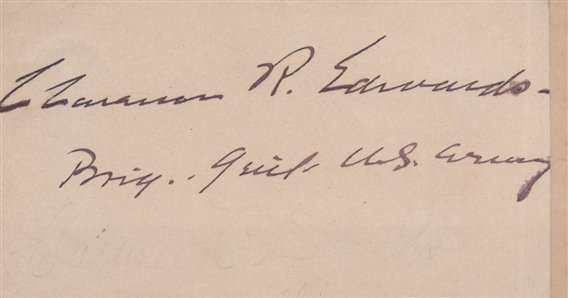 Clarence R. Edwards-
Brig. Gen'l. U.S. Army